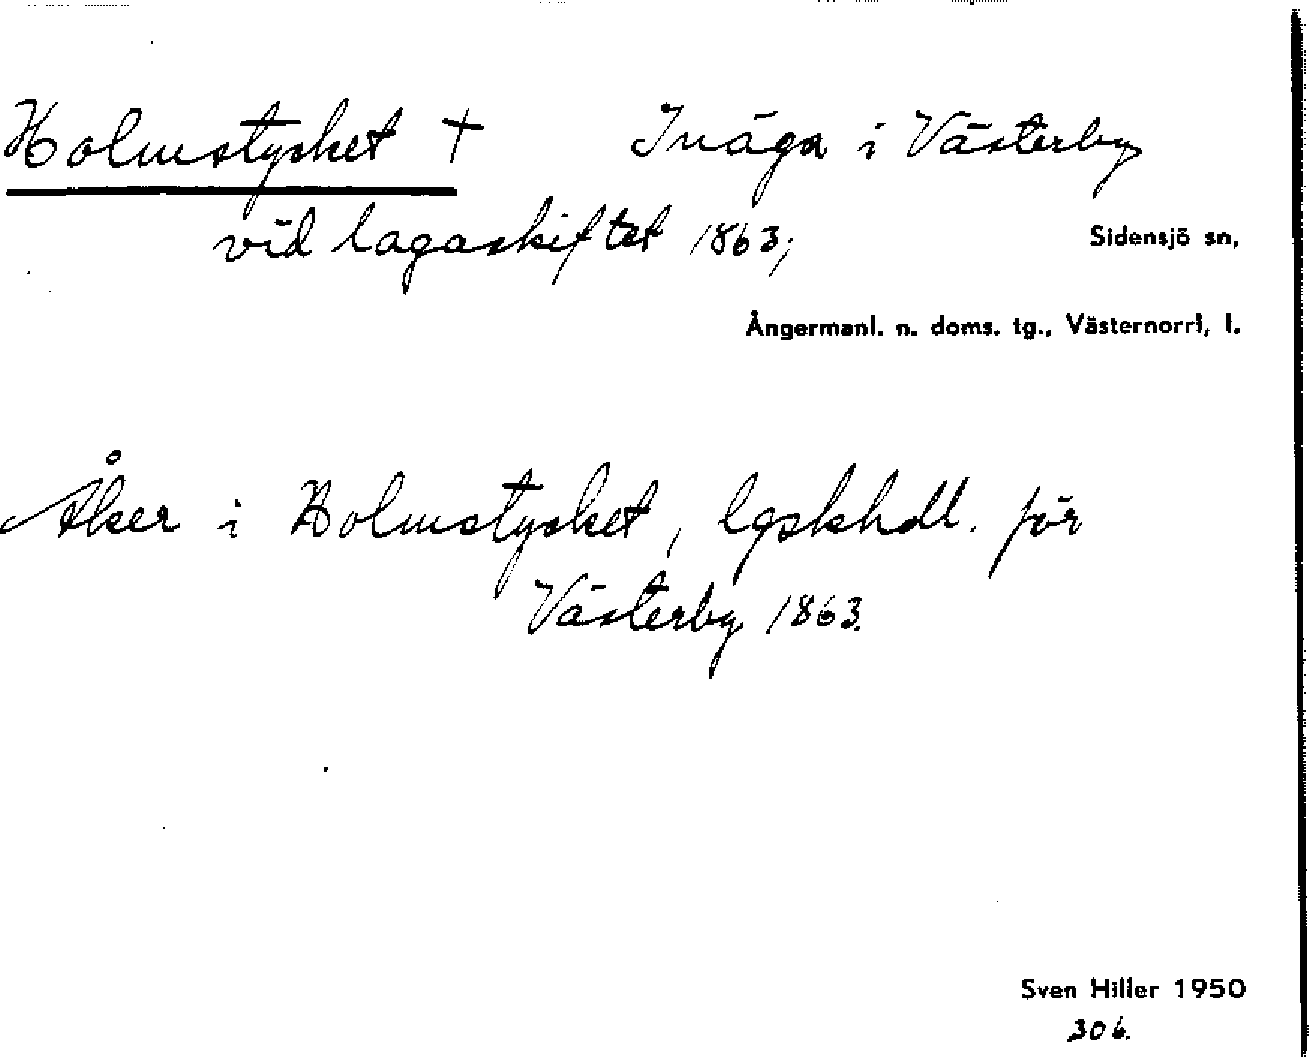 Holmstycket † Inäga i Västerby
vid lagaskiftet 1863;
Sidensjö sn,
Ångermanl. n. doms. tg., Västernorrl, l.
Åker i Holmstycket, lgskhdl. för
Västerby 1863.
Sven Hiller 1950
306.